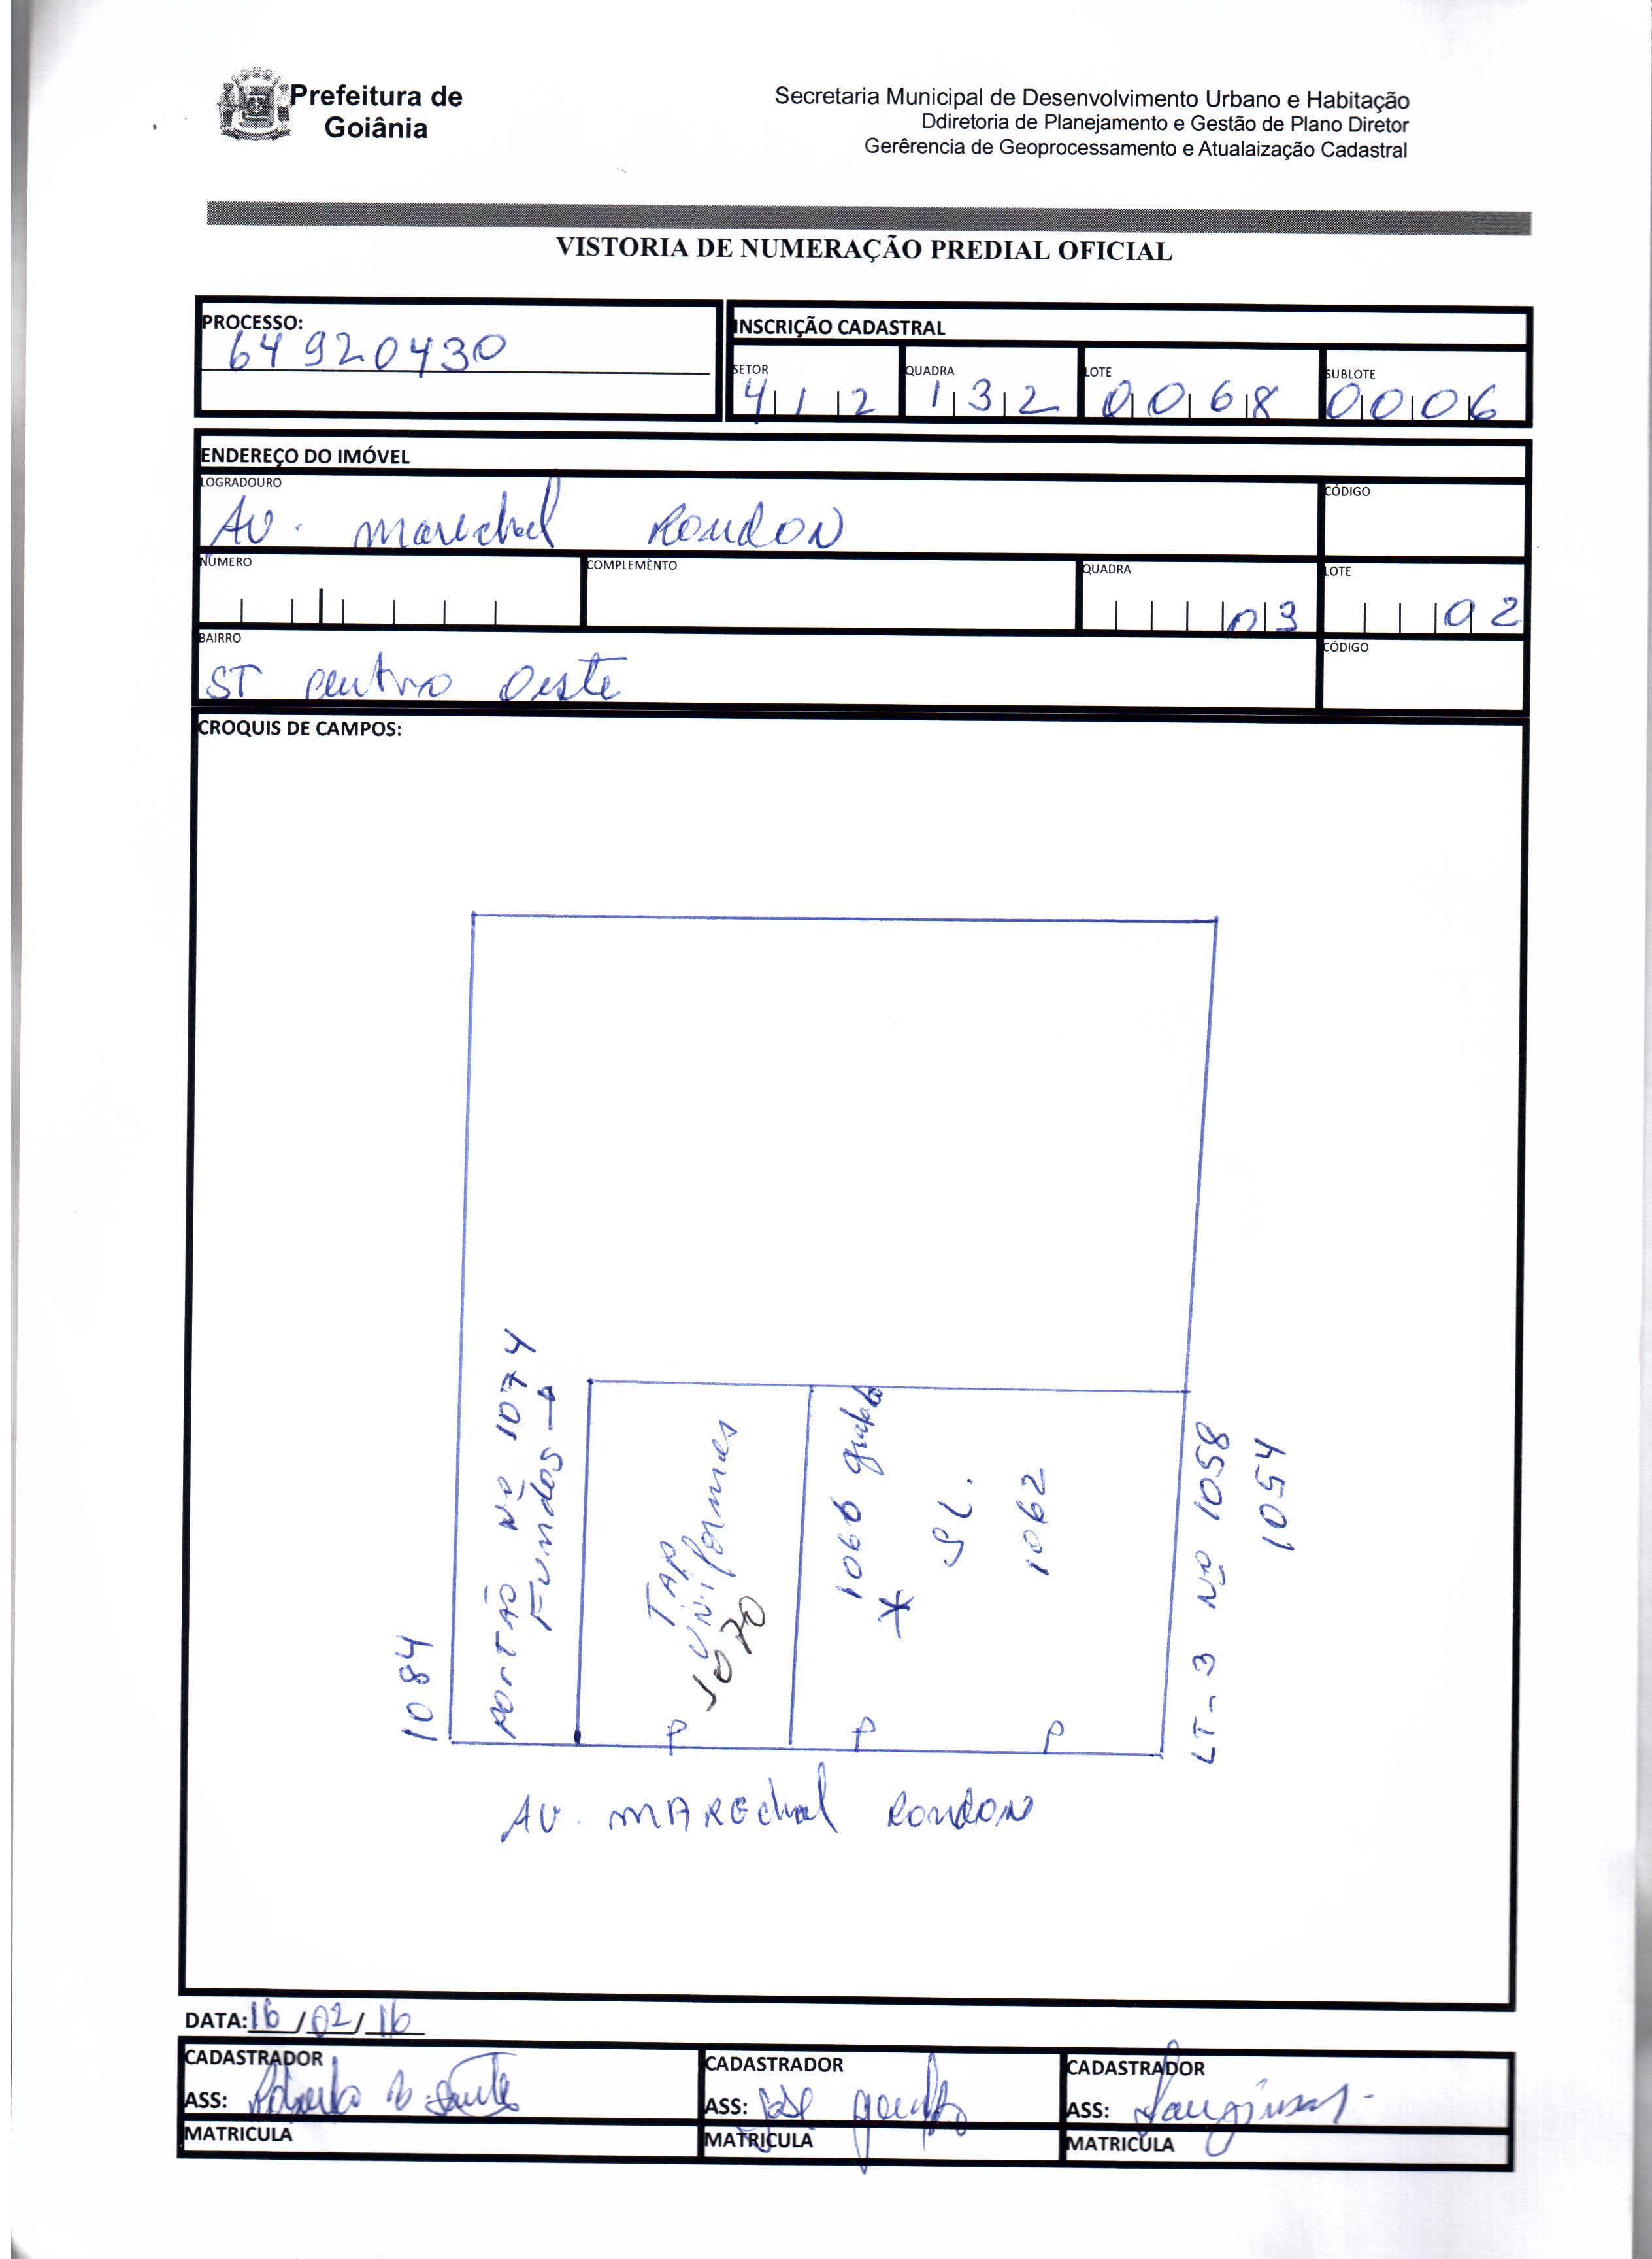 Prefeitura de
Goiânia
Secretaria Municipal de Desenvolvimento Urbano e Habitação
Ddiretoria de Planejamento e Gestão de Plano Diretor
Gerêrencia de Geoprocessamento e Atualaização Cadastral
VISTORIA DE NUMERAÇÃO PREDIAL OFICIAL
PROCESSO:
64920430
INSCRIÇÃO CADASTRAL
SETOR QUADRA LOTE SUBLOTE
412 132 0068 0006
ENDEREÇO DO IMÓVEL
LOGRADOURO CÓDIGO
AV. marechal RONDON
NÚMERO COMPLEMENTO QUADRA LOTE
03 02
BAIRRO CÓDIGO
ST centro oeste
CROQUIS DE CAMPOS:
1084
PORTÃO Nº 1074
Fundos →
TAP
UNiformes
1070
1066
*
SL.
1062
LT-3 Nº 1058
1054
P P P
AV. MAREchal RONDON
DATA: 16/02/16
CADASTRADOR CADASTRADOR CADASTRADOR
ASS: ASS: ASS:
MATRICULA MATRICULA MATRICULA